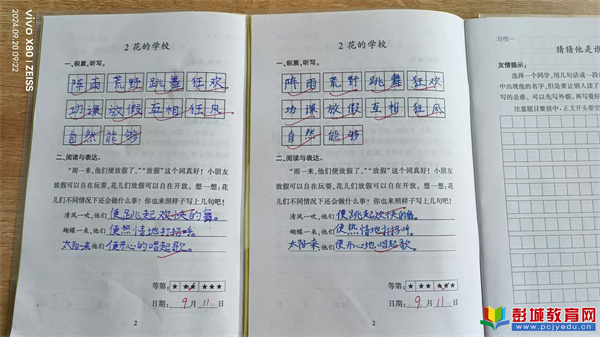 vivo X80 | ZEISS
2024.09.20 09:22
2 花的学校
一、积累,听写。
阵雨 荒野 跳舞 狂欢
功课 放假 互相 狂风
自然 能够
二、阅读与表达。
“雨一来,他们便放假了。”“放假”这个词真好!小朋友
放假可以自在玩耍,花儿们放假可以自在开放。想一想:花
儿们不同情况下还会做什么事?你也来照样子写上几句吧!
清风一吹,他们便跳起欢快的舞。
蝴蝶一来,他们便热情地打招呼。
太阳一晒,他们便开心的唱起歌。
等第:★ ★★ ★★★
日期:9月11日
2
2 花的学校
一、积累,听写。
阵雨 荒野 跳舞 狂欢
功课 放假 互相 狂风
自然 能够
二、阅读与表达。
“雨一来,他们便放假了。”“放假”这个词真好!小朋友
放假可以自在玩耍,花儿们放假可以自在开放。想一想:花
儿们不同情况下还会做什么事?你也来照样子写上几句吧!
清风一吹,他们便跳起欢快的舞。
蝴蝶一来,他们便热情地打招呼。
太阳来,他们便开心地唱起歌。
等第:★ ★★ ★★★
日期:9月11日
2
习作一
猜猜他是谁
友情提示:
选择一个同学,用几句话或一段
中出现他的名字,但是要让别人读了
写的是谁。可以先写外貌,再写爱好
注意题目要居中,正文开头要空
彭城教育网
www.pcjyedu.cn